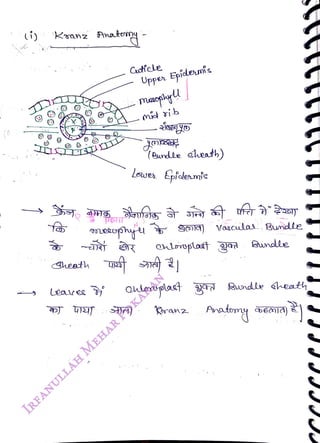 (i) Kranz Anatomy -
Cuticle
Upper Epidermis
mesophyll
mid rib
संवहनपूल
(Bundle sheath)
Lower Epidermis
→ क्रैंज नामक वैज्ञानिक ने गन्ने की पत्ति में देखा
कि mesophyll के अलावा Vascular Bundle
के चारों ओर chloroplast युक्त Bundle
sheath पायी जाती है|
→ Leaves में chloroplast युक्त Bundle sheath
का पाया जाना Kranz Anatomy कहलाता है|
IRFANULLAH MEHAR